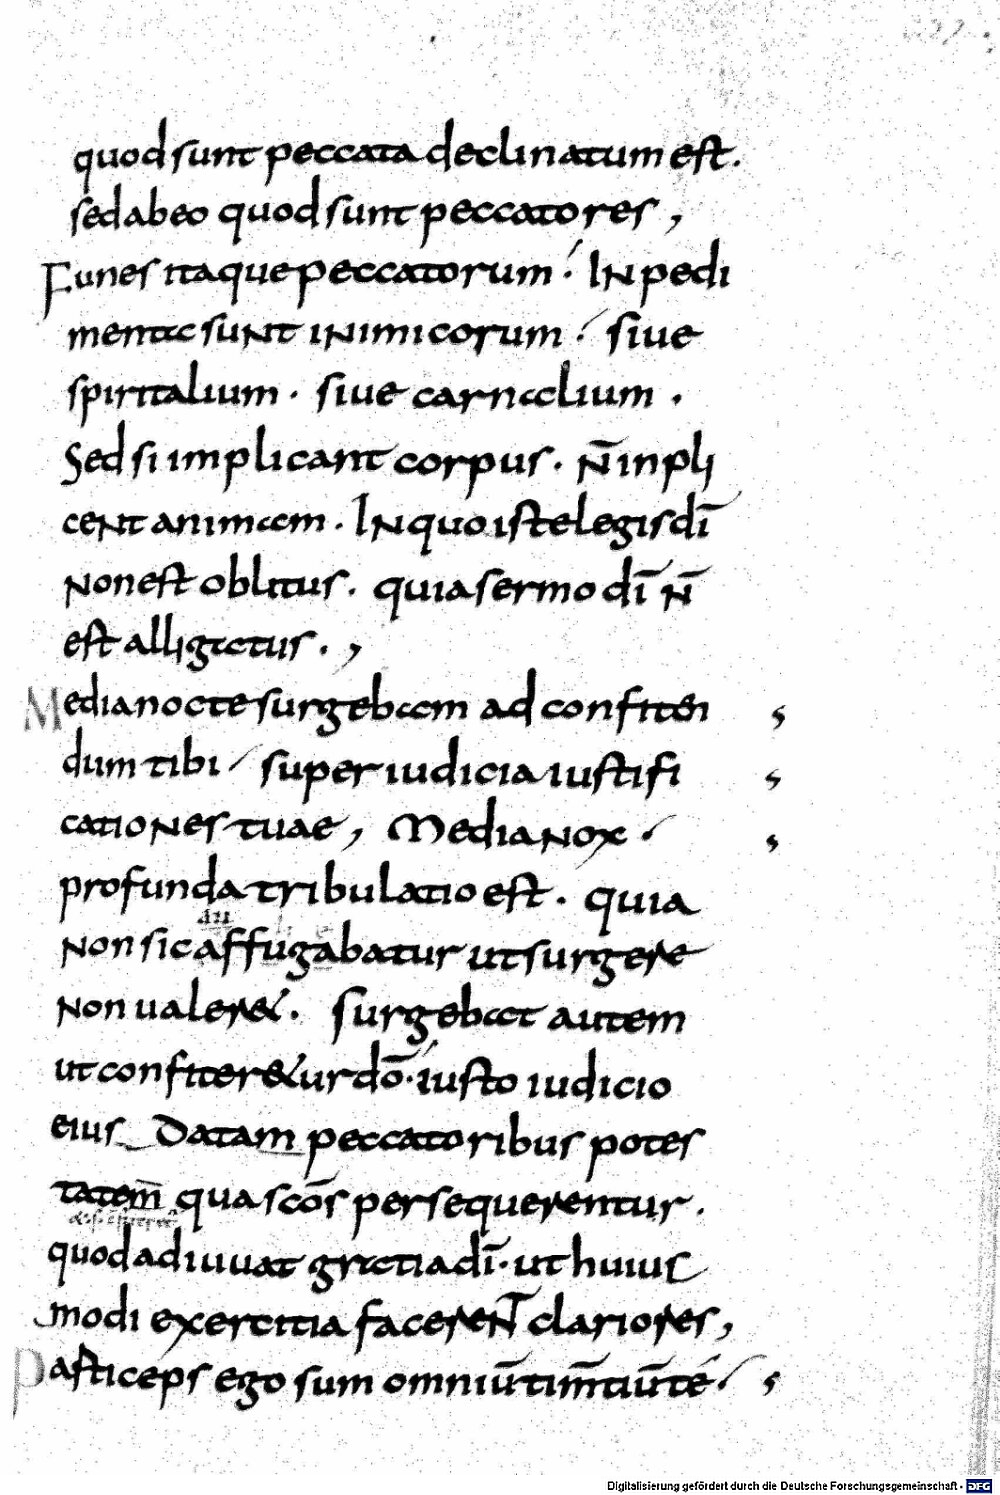 quod sunt peccata declinatum est.
sed abeo quod sunt peccatores,
Funes itaque peccatorum. Inpedi
menta sunt inimicorum. siue
spiritalium. siue carnalium.
Sed si implicant corpus. n̄ inpli
cent animam. In quo iste legis dī
non est oblitus. quia sermo dī n̄
est alligatus.,
Media nocte surgebam ad confiten
dum tibi / super iudicia iustifi
cationes tuae, Media nox.
profunda tribulatio est. quia
au
non sic affugabatur ut surgere
non ualeret. surgebat autem
ut confiteretur dō. iusto iudicio
eius Datam peccatoribus potes
tatem̄ qua scōs persequerentur.
quod adiuuat gratia dī. ut huius
modi exercitia facerent clariores,
Pasticeps ego sum omniū tim̄tiū té.
Digitalisierung gefördert durch die Deutsche Forschungsgemeinschaft - DFG